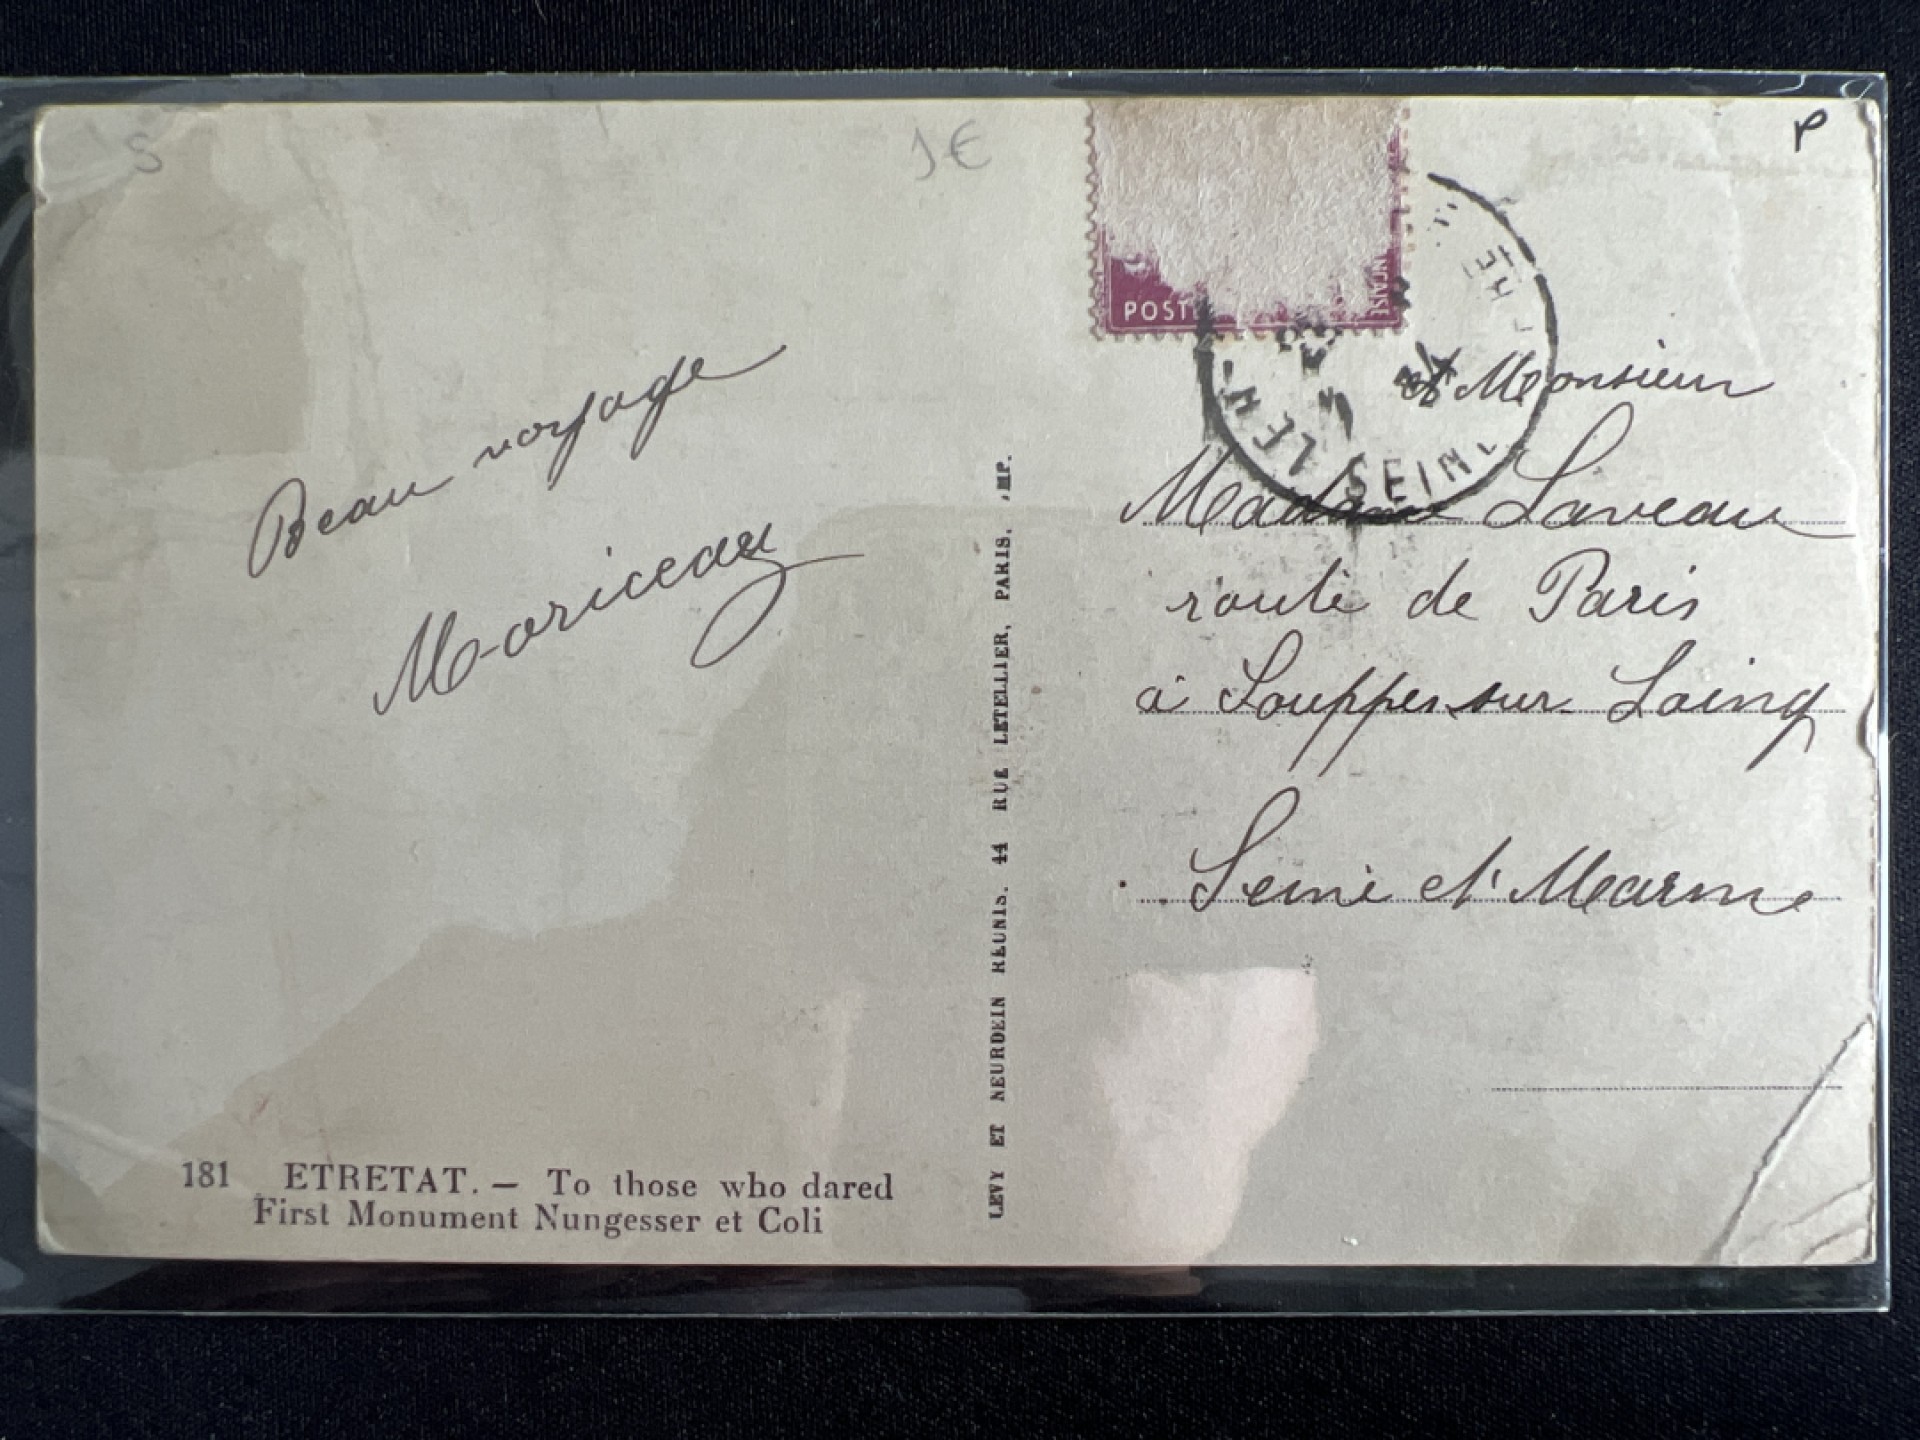 S
1€
P
POSTE
NÇAISE
34
SEINE
Beau voyage
Moriceau
et Monsieur
Madame Laveau
route de Paris
à Souppes sur Loing
Seine et Marne
LEVY ET NEURDEIN REUNIS. 44 RUE LETELLIER, PARIS. IMP.
181 ETRETAT. — To those who dared
First Monument Nungesser et Coli